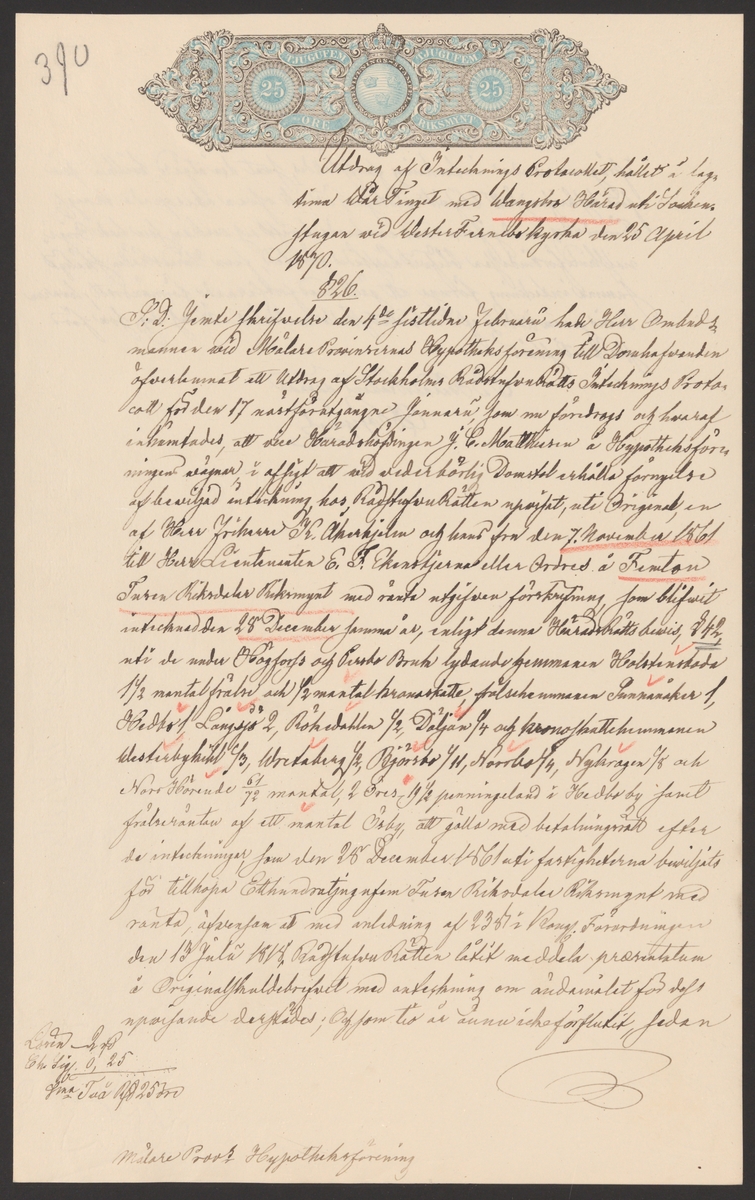 390
TJUGUFEM TJUGUFEM
25 25
ÖRE RIKSMYNT
Utdrag af Intecknings Protocollet, hållet å lag-
tima Wår Tinget med Wangsbro Härad uti Socken-
stugan wid Wester Fernebo Kyrka den 25 April
1870.
§ 26.
S: D: Jemte skrifwelse den 4de sistlidne Februarii hade Herr Ombuds-
mannen wid Mälare Provinsernas Hypotheksförening till Domhafwanden
öfwerlemnat ett Utdrag af Stockholms Rådstufwu Rätts Intecknings Proto-
coll för den 17 nästförutgångne Januarii, som nu föredrogs och hwaraf
inhemtades, att vice Häradshöfdingen J. C. Matthiesen å Hypotheksföre-
ningens wägnar i afsigt att wid wederbörlig Domstol erhålla förnyelse
af bewiljad inteckning, hos Rådstufwu Rätten upwisat, uti Original, en
af Herr Friherre K. Åkerhjelm och hans fru den 7. November 1861
till Herr Lieutenanten E. F. Ekenstjerna eller Ordres å Femton
Tusen Riksdaler Riksmynt med ränta utgifwen förskrifning, som blifwit
intecknad den 28 December samma år, enligt denna Häradsrätts bewis, § 42,
uti de under Högfors och Persbo Bruk lydande hemmanen Holstensboda
1 1/2 mantal frälse och 1/2 mantal kronoskatte, frälsehemmanen Sunnanåker 1,
Hedbo 1, Långsjö 2, Röhedahlen 1/2, Döljan 1/4 och kronoskattehemmanen
Westerbykihl 1/3, Wretaberg 1/2, Björsbo 1/11, Norrbo 1/4, Nyhragen 1/8 och
Norr Hörende 61/72 mantal, 2 Öres 4 1/2 penningeland i Hedbo by samt
frälseräntan af ett mantal Ösby, att gälla med betalningsrätt efter
de inteckningar, som den 28 December 1861 uti fastigheterna bewiljats
för tillhopa Etthundratjugufem Tusen Riksdaler Riksmynt med
ränta, äfwensom att med anledning af 23 § i Kongl. Förordningen
den 13 Julii 1818, Rådstufwu Rätten låtit meddela præsentatum
å Originalskuldebrefwet med anteckning om ändamålet för dess
upwisande derstädes; Och som tio år ännu icke förflutit, sedan
Lösen 2,00
Ch: Sig. 0, 25
Sma Två Rd 25 öre
Mälare Prov:s Hypotheksförening